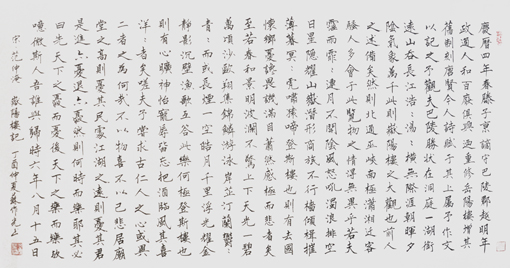 慶曆四年春滕子京謫守巴陵郡越明年
政通人和百廢俱興迺重修岳陽樓增其
舊制刻唐賢今人詩賦于其上屬予作文
以記之予觀夫巴陵勝狀在洞庭一湖銜
遠山吞長江浩々湯々橫無際涯朝暉夕
陰氣象萬千此則嶽陽樓之大觀也前人
之述備矣然則北通巫峽南極瀟湘遷客
騷人多會于此覽物之情得無異乎若夫
霪雨霏々連月不開陰風怒吼濁浪排空
日星隱耀山嶽潛形商旅不行檣傾楫摧
薄暮冥々虎嘯猿啼登斯樓也則有去國
懷鄉憂讒畏譏滿目蕭然感極而悲者矣
至若春和景明波瀾不驚上下天光一碧
萬頃沙鷗翔集錦鱗游泳岸芷汀蘭鬱々
青々而或長煙一空皓月千里浮光耀金
靜影沉璧漁歌互答此樂何極登斯樓也
則有心曠神怡寵辱皆忘把酒臨風其喜
洋々者矣嗟夫予嘗求古仁人之心或異
二者之為何哉不以物喜不以己悲居廟
堂之高則憂其民處江湖之遠則憂其君
是進亦憂退亦憂然則何時而樂耶其必
曰先天下之憂而憂後天下之樂而樂歟
噫微斯人吾誰與歸時六年八月十五日
宋 范仲淹 嶽陽樓記 丁酉仲夏